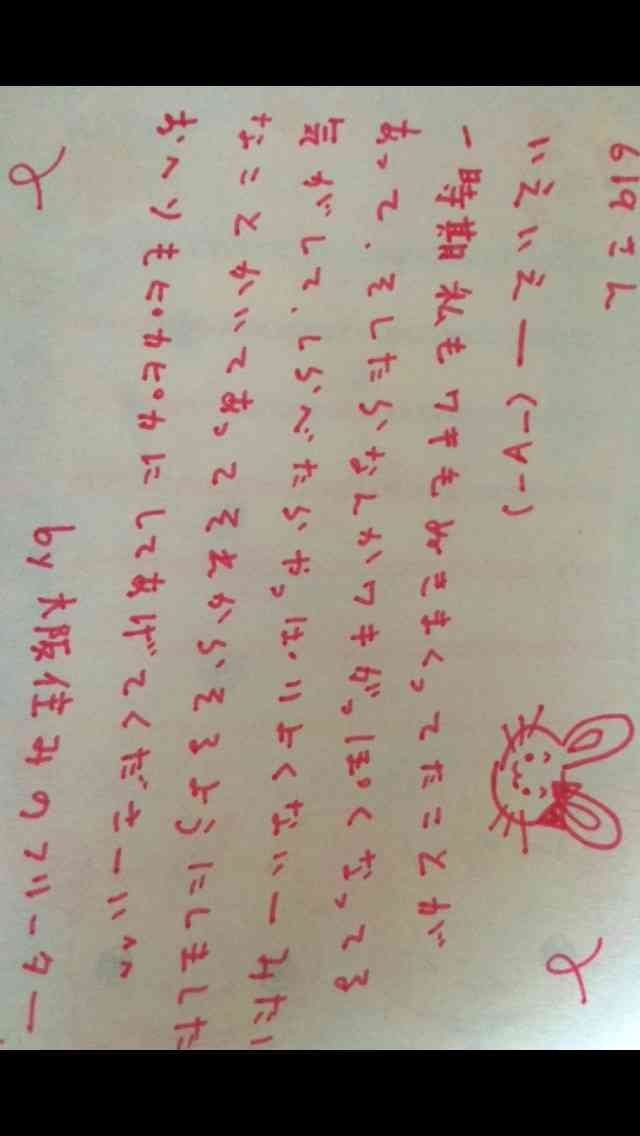 619さん
いえいえー(-A-)
一時期私も やきまくってたことが
あって、そしたらなんか ぽくなってる
気がして、しらべたらやっぱ よくないーみたい
なことかいてあってそれからそるようにしました
してあげてくださーい
by 大阪住みのフリーター